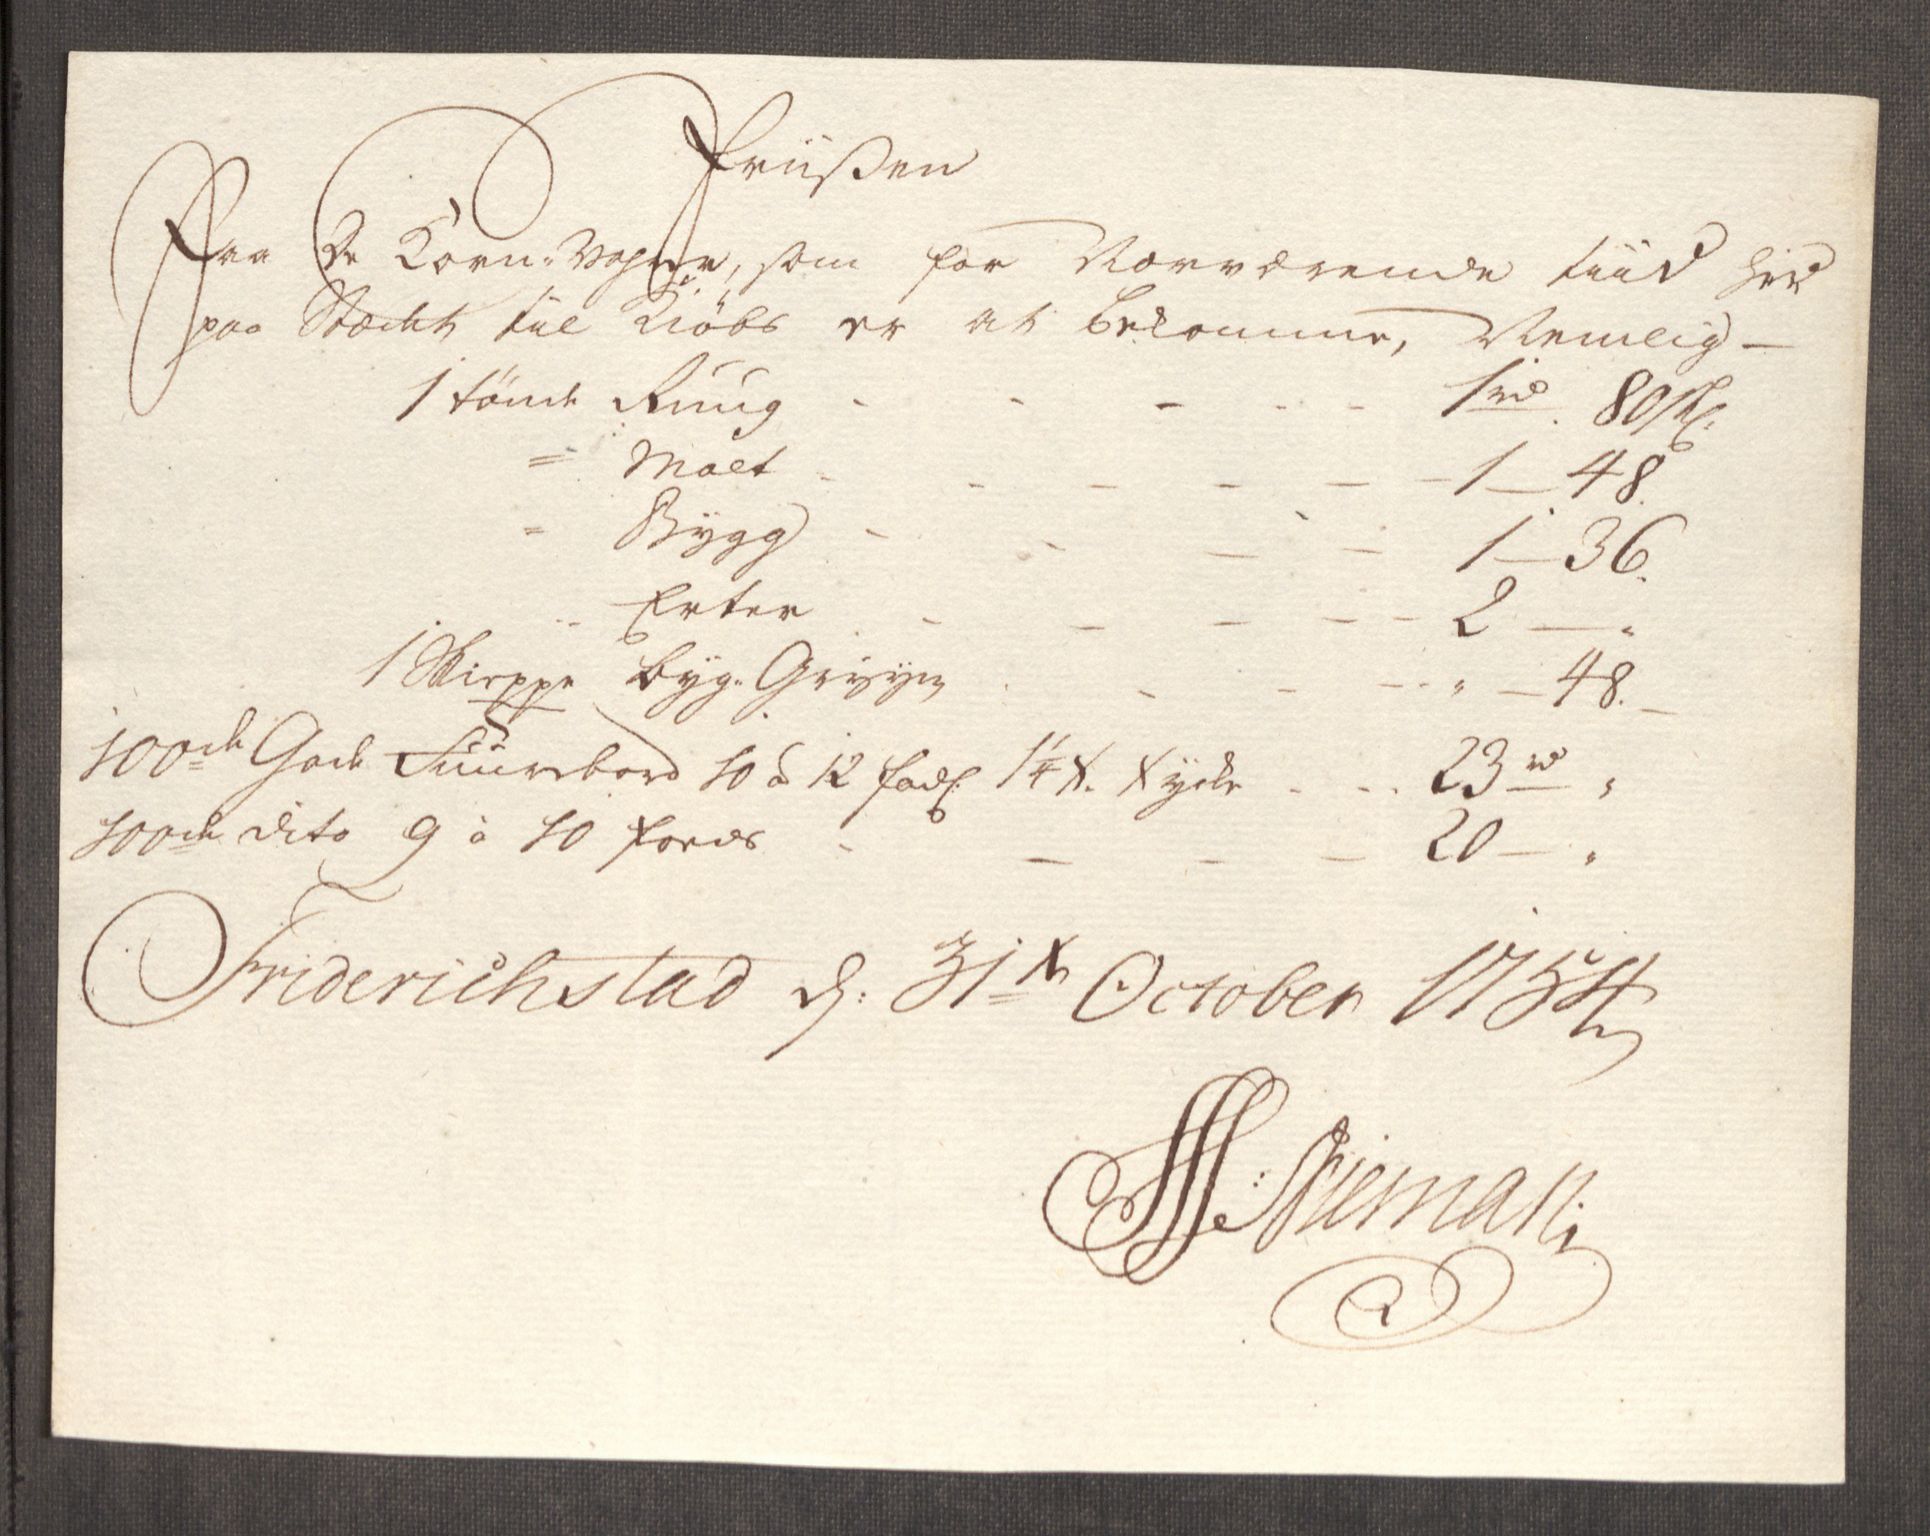 Priißen
Paa De Korn-Vahrer, som for Nærværende tiid her
paa Stædit til Kiøbs er at bekomme, Nemlig –
1 tönde Ruug - - - - 1 rd. 80 sk.
= Malt - - - - 1 – 48.
= Bygg - - - - 1 – 36.
" Erter - - - - 2 – "
1 Skieppe byg-Gryyn - - - " – 48. –
100de Gode Fuurebord 10 à 12 fods 1 1/4 t. tycke - - 23 rd "
100de dito 9 à 10 foeds - - - - 20 – "
Friderichstad d: 31te October 1754
Nieman